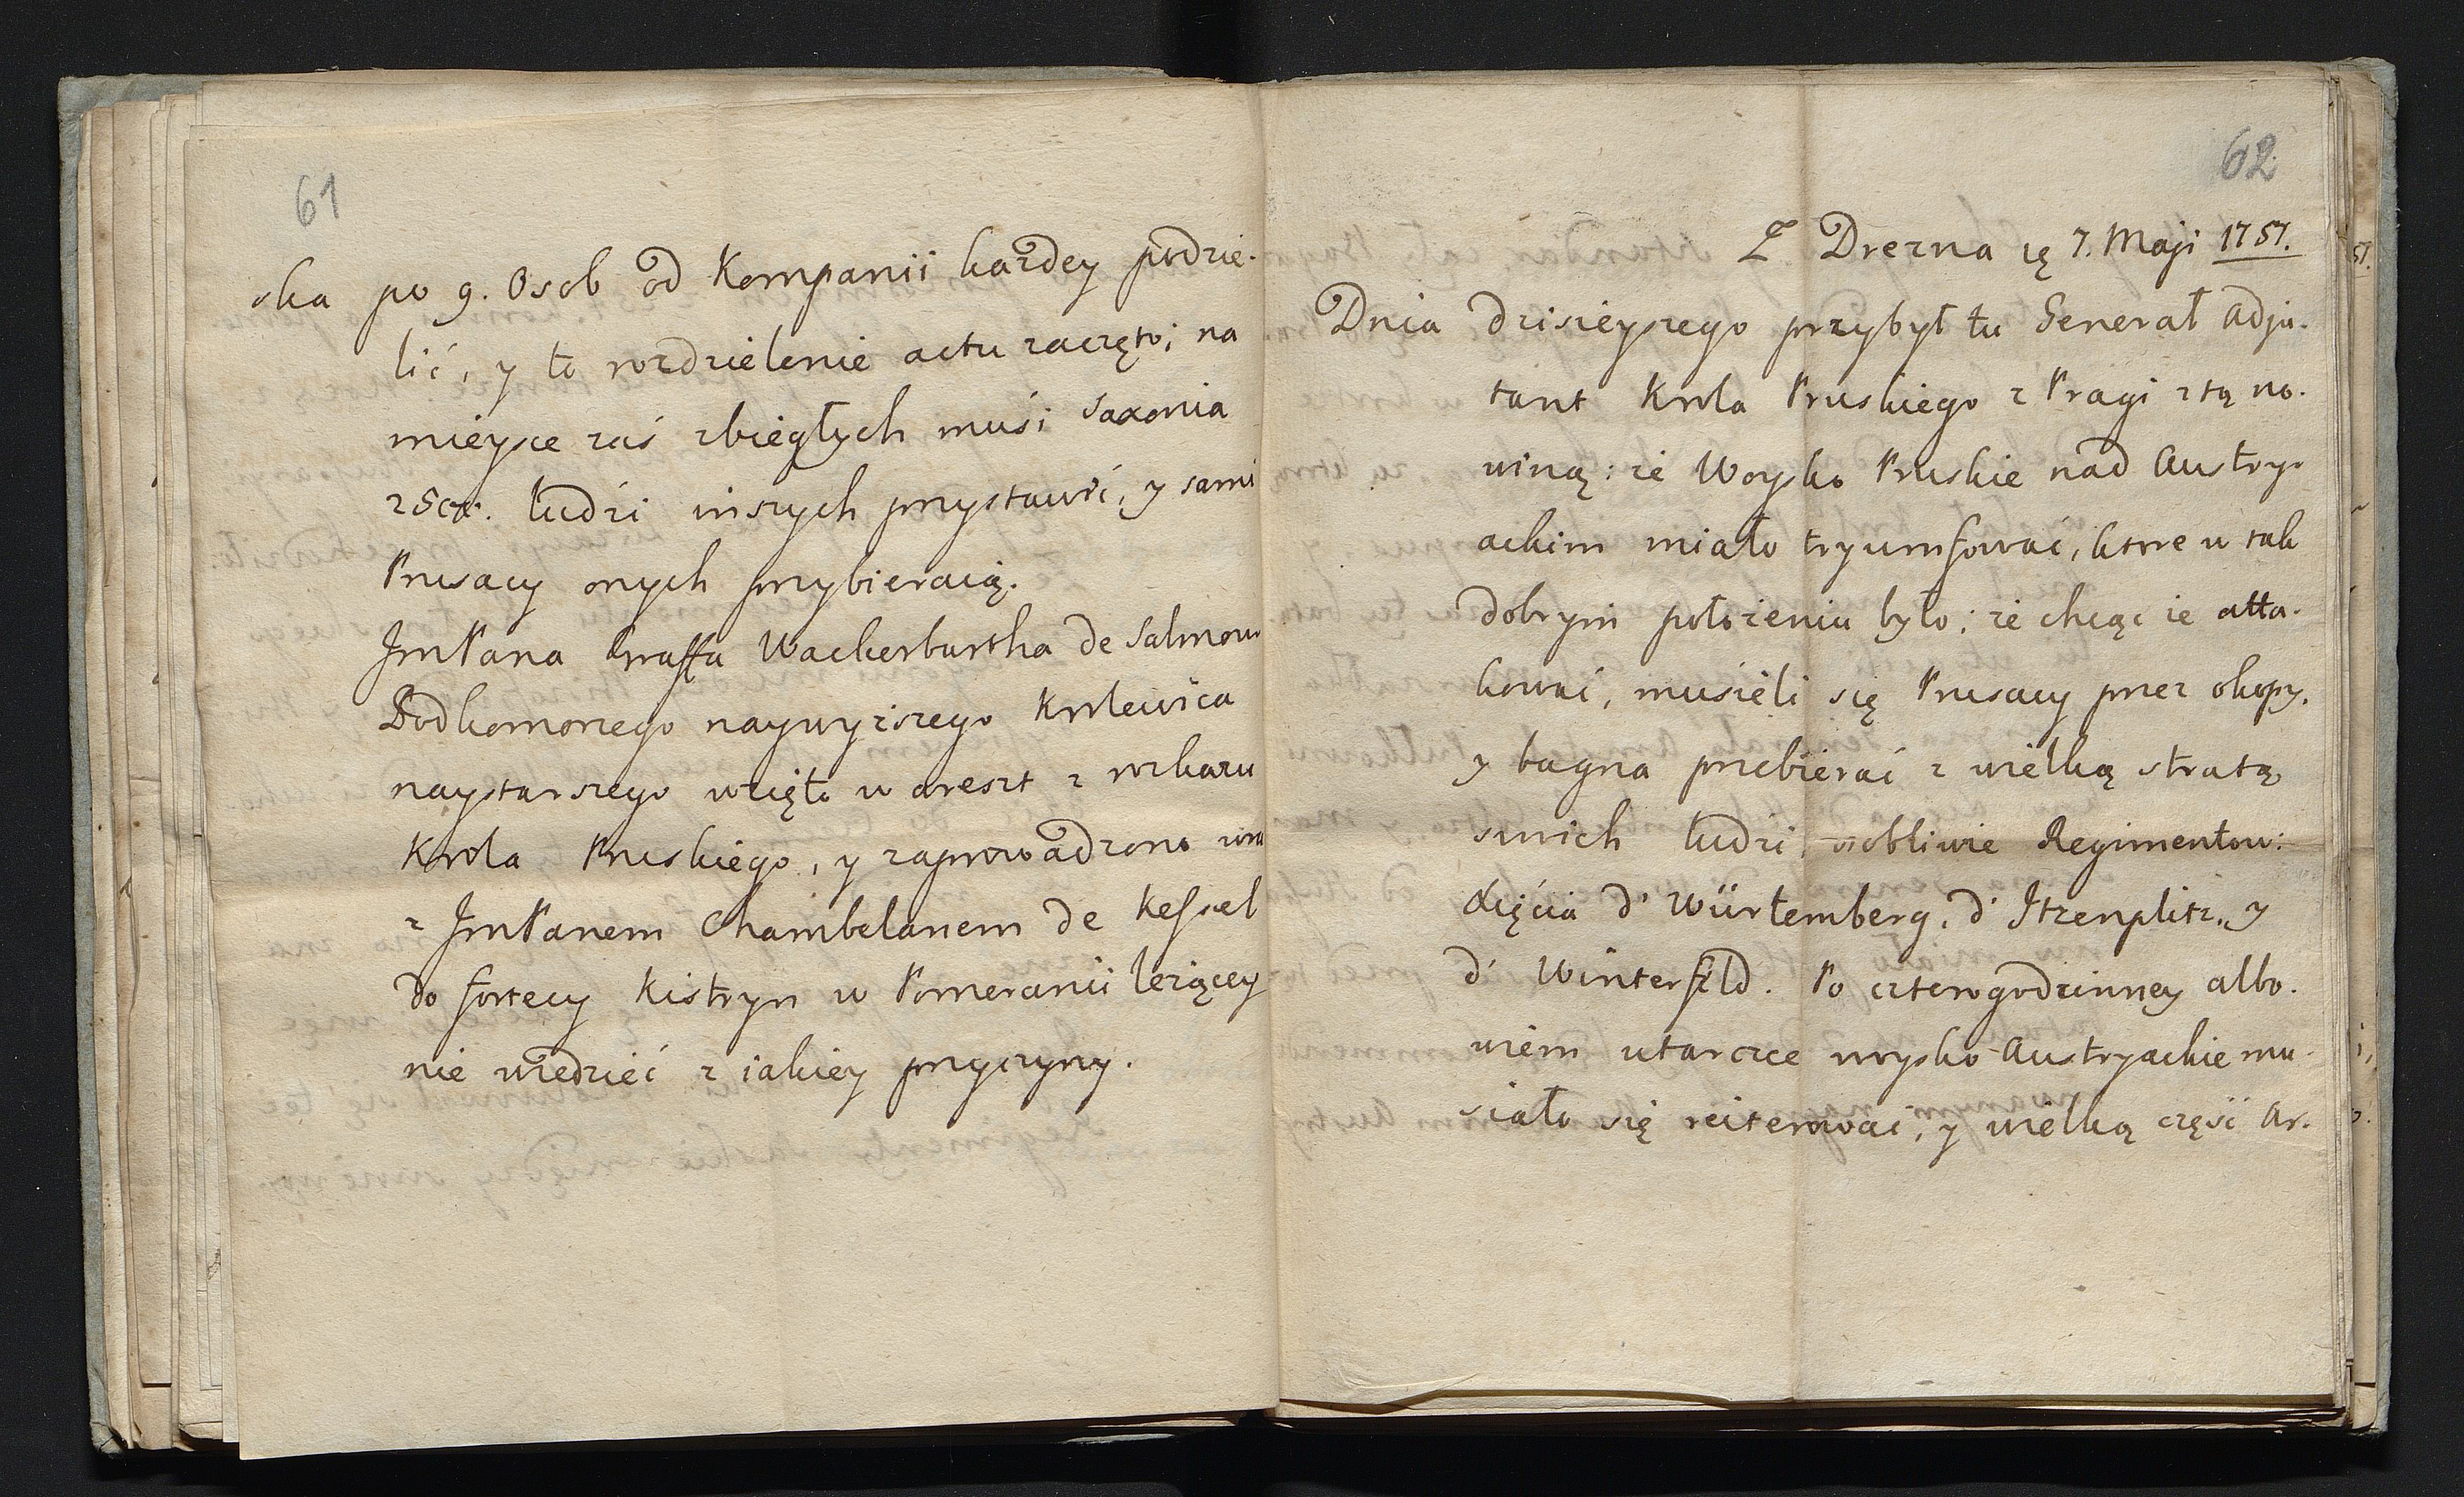 61
ska po 9. Osob od Kompanii każdey podzie-
lić, y to rozdzielenie actu zaczęto; na
mieysce zaś zbiegłych muśi Saxonia
ludźi inszych przystawić, y sami
Prusacy onych przybieraią.
JmPana Graffa Wackerbartha de Salmour
Podkomorzego naywyższego Krolewica
naystarszego wzięto w areszt z rozkazu
Krola Pruskiego, y zaprowadzono wraz
z JmPanem Chambelanem de Kessel
do fortecy Kistryn w Pomeranii leżącey
nie wiedzieć z iakiey przyczyny.
62
Z Drezna ię 7. Maji 1757.
Dnia dzisieyszego przybył tu Generał Adju-
tant Krola Pruskiego z Pragi z tą no-
winą: że Woysko Pruskie nad Austry-
ackim miało tryumfować, ktore w tak
dobrym położeniu było; że chcąc ie atta-
kować, musieli się Prusacy przez okopy,
y bagna przebierać z wielką stratą
swoich ludzi, osobliwie Regimentow:
Xięcia d' Würtemberg, d' Itzenplitz, y
d' Winterfeld. Po czterogodzinney albo-
wiem utarczce woysko Austryackie mu-
siało się reiterować, y wielką część Ar-